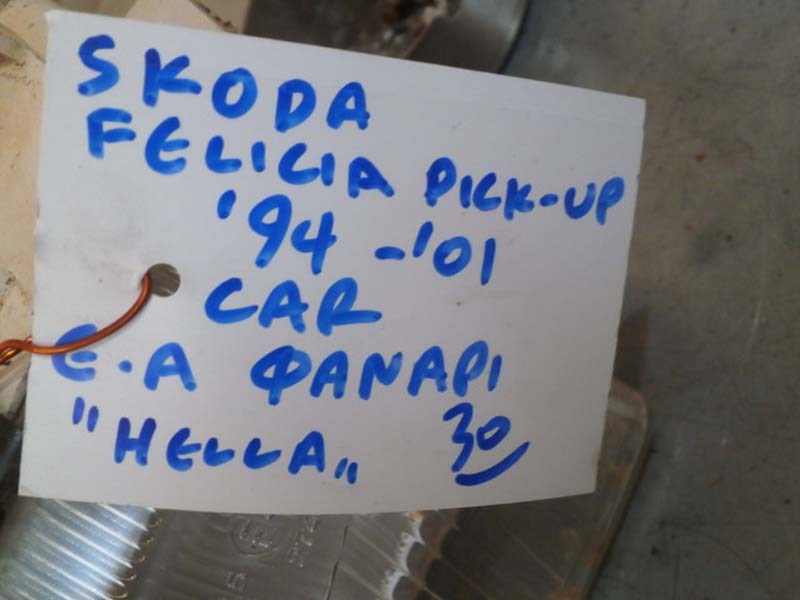 SKODA
FELICIA PICK-UP
'94 -'01
CAR
E.A ΦΑΝΑΡΙ
"HELLA"
30